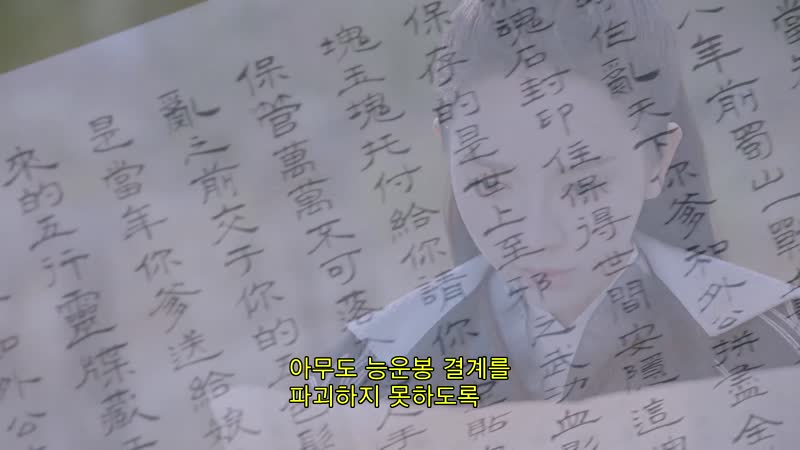 八年前蜀山一戰
作亂天下你爹和外公拼盡全
魂石封印住保得世間安隱這
保存的是世上至邪之武功血影
塊玉塊托付給你請你
貼
保管萬萬不可落入
手
亂之前交于你的
是當年你爹送給娘
來的五行靈牒藏
和外公
아무도 능운봉 결계를
파괴하지 못하도록